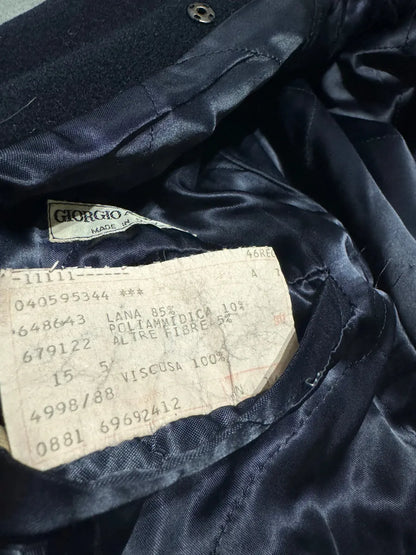 GIORGIO
MADE IN
-11111------ 46REG
040595344 *** A
648643 LANA 85%
POLIAMMIDICA 10%
679122 ALTRE FIBRE 5%
15 5 VISCOSA 100%
4998/88
0881 69692412